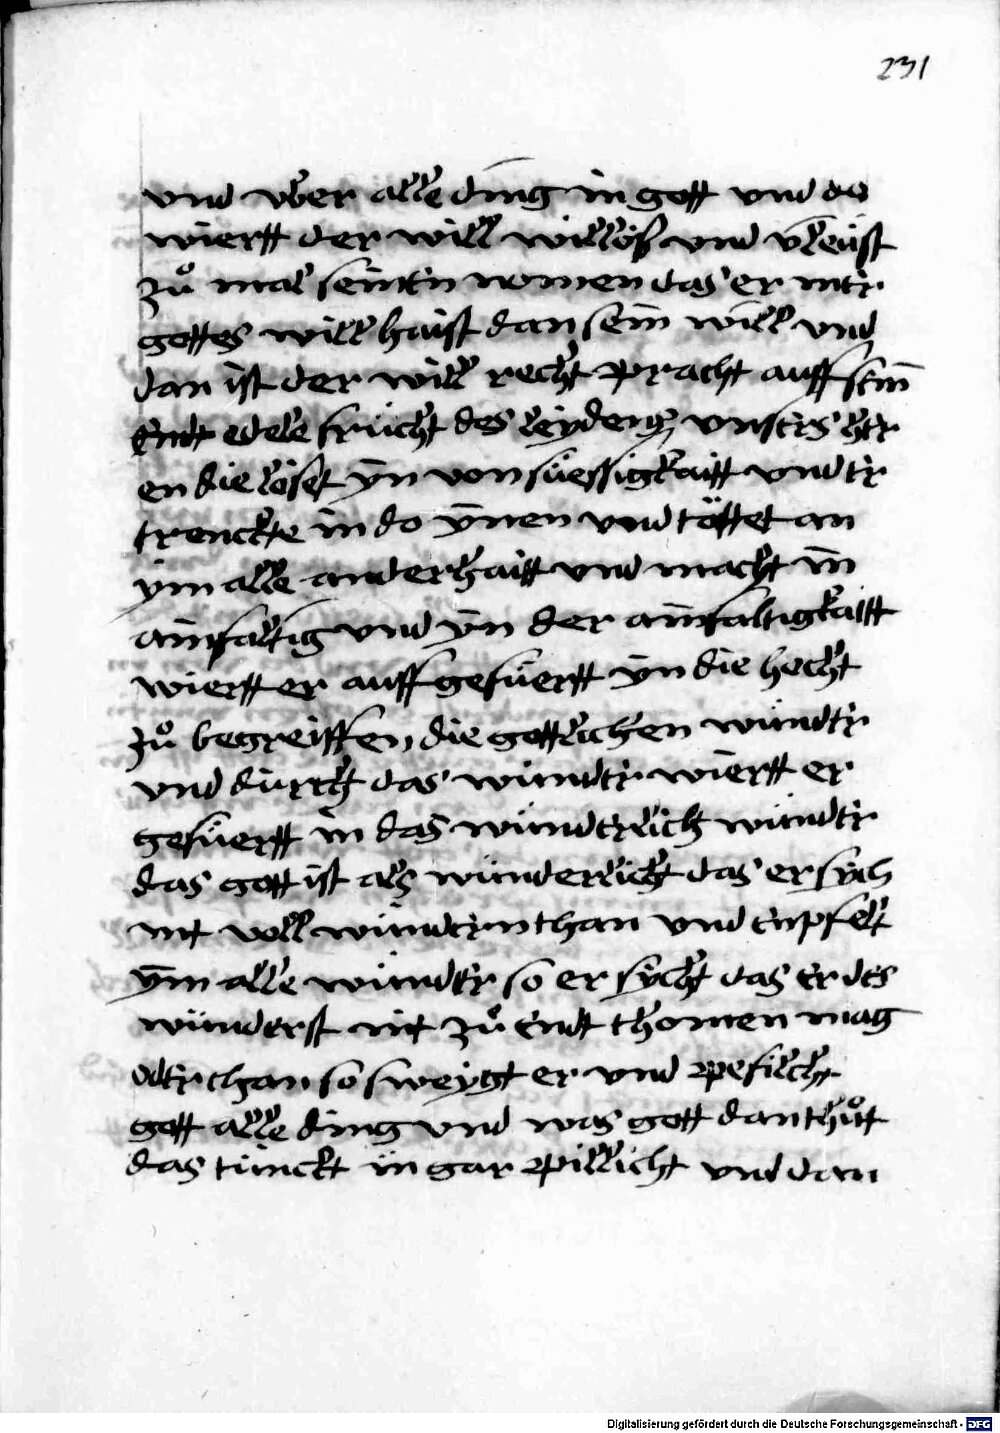 231
und vber alle ding in gott und do
wiertt der will willoß und vleüst
zů mal seinen nomen das er mer
gottes will haist dan sein will und
dan ist der will recht pracht auff sein
endt edele frücht des leydens unsers her
en die löset yn von süessigkaitt und er
trenckte in do ynen und töttet an
ym alle anderhaitt und macht in
ainfaltig und yn der ainfaltigkaitt
wiertt er auffgefüertt yn die hecht
zů begreiffen die gottlichen wunder
und durch das wunder wiertt er
gefüertt in das wunderlich wunder
das gott ist als wunderlicht das er sych
nit voll wundern than und enpfelt
ym alle wunder so er sycht das er des
wunderst nit zů endt khomen mag
oder chan so sweygt er und pefilcht
gott alle ding und was gott dan thůt
das tunckt in gar pillicht und dan
Digitalisierung gefördert durch die Deutsche Forschungsgemeinschaft - DFG